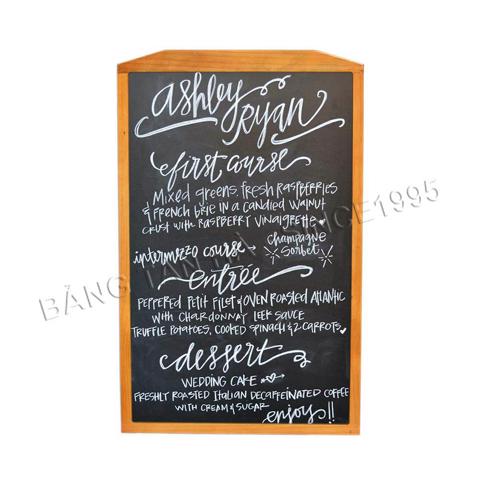 ashley
Ryan
first course
Mixed greens, fresh Raspberries
& French brie in a candied walnut
crust with Raspberry Vinaigrette
intermezzo course → Champagne Sorbet
entrée
Peppered Petit Filet & Oven Roasted Atlantic
with Chardonnay Leek Sauce
Truffle Potatoes, Cooked Spinach & 2 Carrots
dessert
Wedding Cake
Freshly Roasted Italian Decaffeinated Coffee
with Cream & Sugar
enjoy!!
BẢNG TÂN HÀ SINCE1995